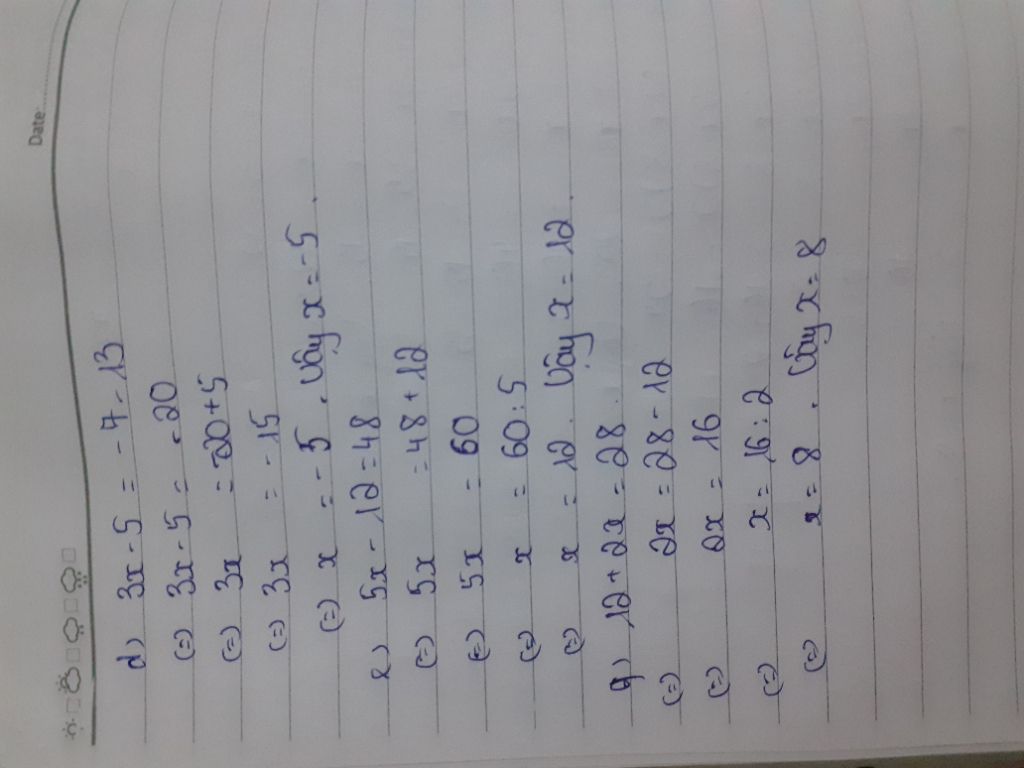 Date:
d) 3x - 5 = - 7 - 13
(=) 3x - 5 = - 20
(=) 3x = -20 + 5
(=) 3x = - 15
(=) x = - 5 . Vậy x = - 5 .
e) 5x - 12 = 48
(=) 5x = 48 + 12
(=) 5x = 60
(=) x = 60 : 5
(=) x = 12 . Vậy x = 12 .
g) 12 + 2x = 28 .
(=) 2x = 28 - 12
(=) 2x = 16
(=) x = 16 : 2
(=) x = 8 . Vậy x = 8